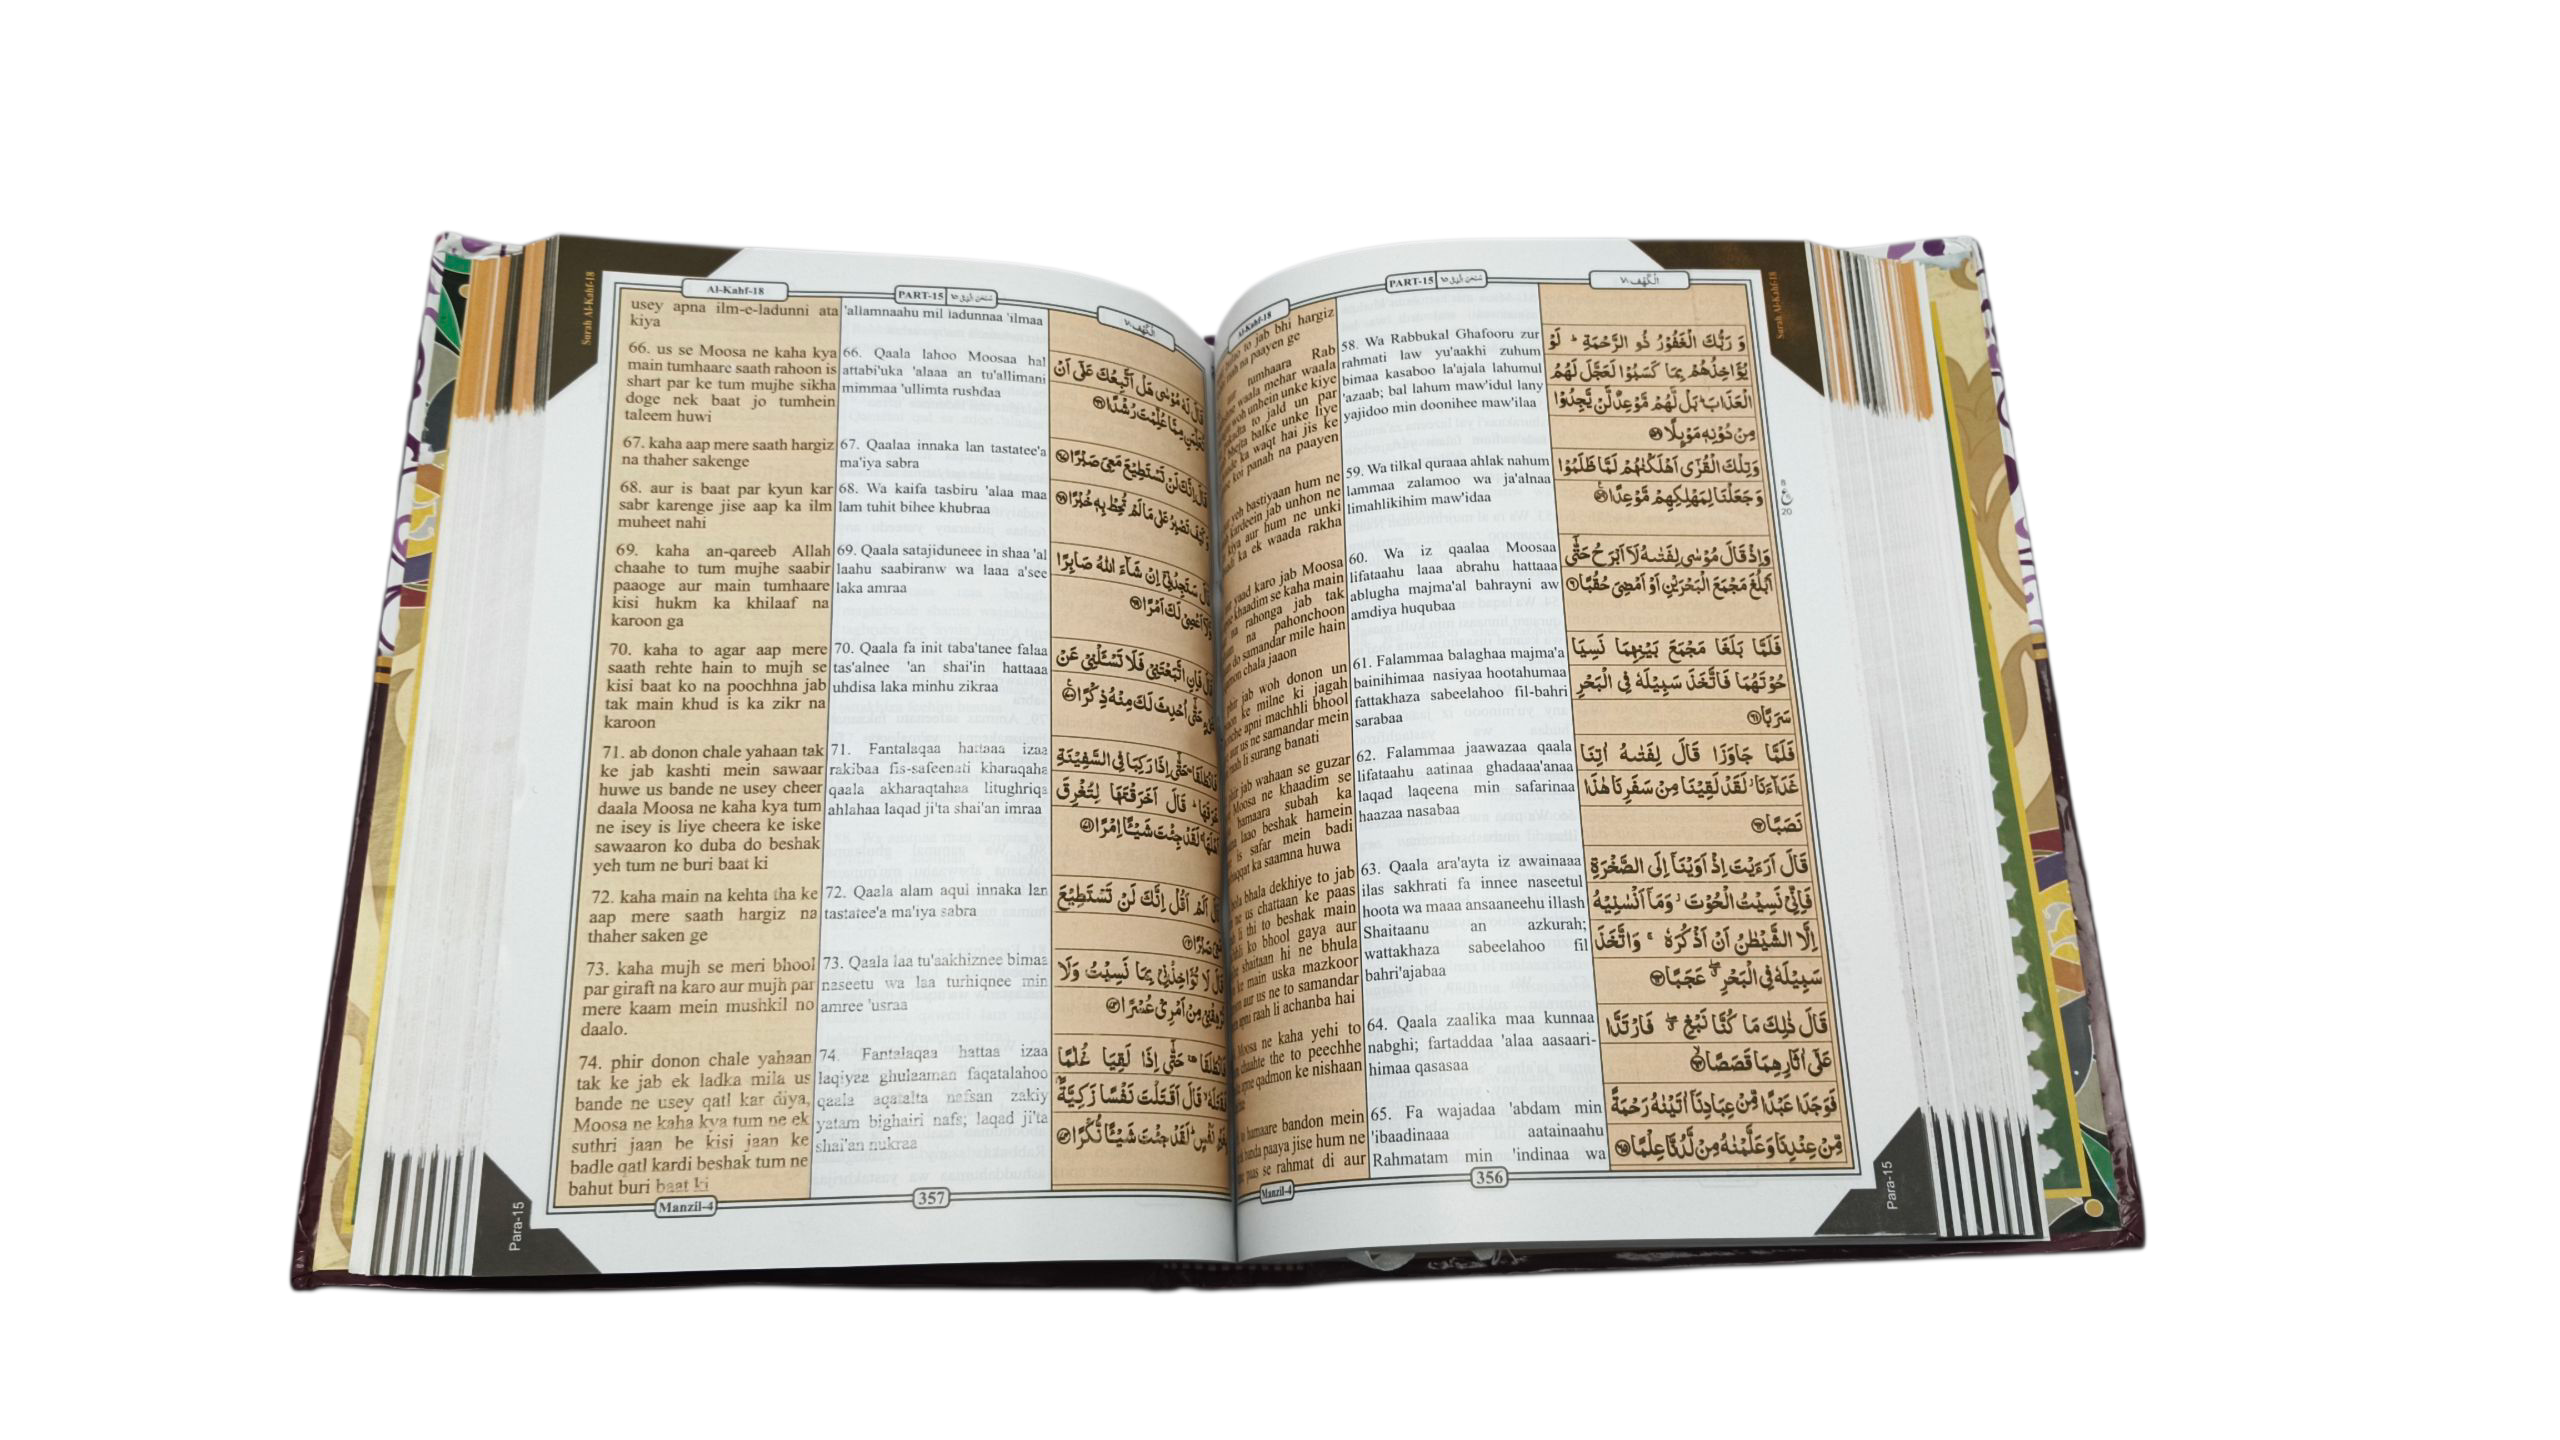 Surah Al-Kahf-18
الْكَهْف ١٨
PART-15
سُبْحٰنَ الَّذِيْ ١٥
Al-Kahf-18
وَ رَبُّكَ الْغَفُوْرُ ذُو الرَّحْمَةِ ؕ لَوْ
يُؤَاخِذُهُمْ بِمَا كَسَبُوْا لَعَجَّلَ لَهُمُ
الْعَذَابَ ؕ بَلْ لَّهُمْ مَّوْعِدٌ لَّنْ يَّجِدُوْا
مِنْ دُوْنِهٖ مَوْىِٕلًا ۝۵۸
وَتِلْكَ الْقُرٰۤى اَهْلَكْنٰهُمْ لَمَّا ظَلَمُوْا
وَجَعَلْنَا لِمَهْلِكِهِمْ مَّوْعِدًا ۝۵۹
8
ع
20
وَاِذْ قَالَ مُوْسٰى لِفَتٰىهُ لَاۤ اَبْرَحُ حَتّٰۤى
اَبْلُغَ مَجْمَعَ الْبَحْرَيْنِ اَوْ اَمْضِيَ حُقُبًا ۝۶۰
فَلَمَّا بَلَغَا مَجْمَعَ بَيْنِهِمَا نَسِيَا
حُوْتَهُمَا فَاتَّخَذَ سَبِيْلَهٗ فِى الْبَحْرِ
سَرَبًا ۝۶۱
فَلَمَّا جَاوَزَا قَالَ لِفَتٰىهُ اٰتِنَا
غَدَآءَنَا ؗ لَقَدْ لَقِيْنَا مِنْ سَفَرِنَا هٰذَا
نَصَبًا ۝۶۲
قَالَ اَرَءَيْتَ اِذْ اَوَيْنَاۤ اِلَى الصَّخْرَةِ
فَاِنِّيْ نَسِيْتُ الْحُوْتَ ؗ وَمَاۤ اَنْسٰىنِيْهُ
اِلَّا الشَّيْطٰنُ اَنْ اَذْكُرَهٗ ۚ وَاتَّخَذَ
سَبِيْلَهٗ فِى الْبَحْرِ ۖ عَجَبًا ۝۶۳
قَالَ ذٰلِكَ مَا كُنَّا نَبْغِ ۖ فَارْتَدَّا
عَلٰۤى اٰثَارِهِمَا قَصَصًا ۝۶۴
فَوَجَدَا عَبْدًا مِّنْ عِبَادِنَاۤ اٰتَيْنٰهُ رَحْمَةً
مِّنْ عِنْدِنَا وَعَلَّمْنٰهُ مِنْ لَّدُنَّا عِلْمًا ۝۶۵
58. Wa Rabbukal Ghafooru zur
rahmati law yu'aakhi zuhum
bimaa kasaboo la'ajala lahumul
'azaab; bal lahum maw'idul lany
yajidoo min doonihee maw'ilaa
59. Wa tilkal quraaa ahlak nahum
lammaa zalamoo wa ja'alnaa
limahlikihim maw'idaa
60. Wa iz qaalaa Moosaa
lifataahu laaa abrahu hattaaa
ablugha majma'al bahrayni aw
amdiya huqubaa
61. Falammaa balaghaa majma'a
bainihimaa nasiyaa hootahumaa
fattakhaza sabeelahoo fil-bahri
sarabaa
62. Falammaa jaawazaa qaala
lifataahu aatinaa ghadaaa'anaa
laqad laqeena min safarinaa
haazaa nasabaa
63. Qaala ara'ayta iz awainaaa
ilas sakhrati fa innee naseetul
hoota wa maaa ansaaneehu illash
Shaitaanu an azkurah;
wattakhaza sabeelahoo fil
bahri'ajabaa
64. Qaala zaalika maa kunnaa
nabghi; fartaddaa 'alaa aasaari-
himaa qasasaa
65. Fa wajadaa 'abdam min
'ibaadinaaa aatainaahu
Rahmatam min 'indinaa wa
to jab bhi hargiz
na paayen ge
tumhaara Rab
waala mehar waala
woh unhein unke kiye
to jald un par
balke unke liye
ka waqt hai jis ke
koi panah na paayen
yeh bastiyaan hum ne
kardeein jab unhon ne
kiya aur hum ne unki
ka ek waada rakha
yaad karo jab Moosa
khaadim se kaha main
na rahonga jab tak
na pahonchoon
do samandar mile hain
chala jaaon
phir jab woh donon un
ke milne ki jagah
apni machhli bhool
aur us ne samandar mein
raah li surang banati
jab wahaan se guzar
Moosa ne khaadim se
hamaara subah ka
laao beshak hamein
is safar mein badi
ka saamna huwa
bhala dekhiye to jab
ne us chattaan ke paas
li thi to beshak main
ko bhool gaya aur
shaitaan hi ne bhula
ke main uska mazkoor
aur us ne to samandar
apni raah li achanba hai
Moosa ne kaha yehi to
chaahte the to peechhe
apne qadmon ke nishaan
hamaare bandon mein
banda paaya jise hum ne
paas se rahmat di aur
Manzil-4
356
Para-15
Surah Al-Kahf-18
Al-Kahf-18
PART-15
سُبْحٰنَ الَّذِيْ ١٥
الْكَهْف ١٨
قَالَ لَهٗ مُوْسٰى هَلْ اَتَّبِعُكَ عَلٰۤى اَنْ
تُعَلِّمَنِ مِمَّا عُلِّمْتَ رُشْدًا ۝۶۶
قَالَ اِنَّكَ لَنْ تَسْتَطِيْعَ مَعِيَ صَبْرًا ۝۶۷
وَكَيْفَ تَصْبِرُ عَلٰى مَا لَمْ تُحِطْ بِهٖ خُبْرًا ۝۶۸
قَالَ سَتَجِدُنِيْۤ اِنْ شَآءَ اللّٰهُ صَابِرًا
وَّلَاۤ اَعْصِيْ لَكَ اَمْرًا ۝۶۹
قَالَ فَاِنِ اتَّبَعْتَنِيْ فَلَا تَسْـَٔلْنِيْ عَنْ
حَتّٰۤى اُحْدِثَ لَكَ مِنْهُ ذِكْرًا ۝۷۰
فَانْطَلَقَا ۥ حَتّٰۤى اِذَا رَكِبَا فِى السَّفِيْنَةِ
خَرَقَهَا ؕ قَالَ اَخَرَقْتَهَا لِتُغْرِقَ
اَهْلَهَا ۚ لَقَدْ جِئْتَ شَيْـًٔا اِمْرًا ۝۷۱
قَالَ اَلَمْ اَقُلْ اِنَّكَ لَنْ تَسْتَطِيْعَ
مَعِيَ صَبْرًا ۝۷۲
قَالَ لَا تُؤَاخِذْنِيْ بِمَا نَسِيْتُ وَلَا
تُرْهِقْنِيْ مِنْ اَمْرِيْ عُسْرًا ۝۷۳
فَانْطَلَقَا ۥ حَتّٰۤى اِذَا لَقِيَا غُلٰمًا
فَقَتَلَهٗ ۙ قَالَ اَقَتَلْتَ نَفْسًا زَكِيَّةًۢ
بِغَيْرِ نَفْسٍ ؕ لَقَدْ جِئْتَ شَيْـًٔا نُّكْرًا ۝۷۴
'allamnaahu mil ladunnaa 'ilmaa
66. Qaala lahoo Moosaa hal
attabi'uka 'alaaa an tu'allimani
mimmaa 'ullimta rushdaa
67. Qaalaa innaka lan tastatee'a
ma'iya sabra
68. Wa kaifa tasbiru 'alaa maa
lam tuhit bihee khubraa
69. Qaala satajiduneee in shaa 'al
laahu saabiranw wa laaa a'see
laka amraa
70. Qaala fa init taba'tanee falaa
tas'alnee 'an shai'in hattaaa
uhdisa laka minhu zikraa
71. Fantalaqaa hattaaa izaa
rakibaa fis-safeenati kharaqaha
qaala akharaqtahaa litughriqa
ahlahaa laqad ji'ta shai'an imraa
72. Qaala alam aqul innaka lan
tastatee'a ma'iya sabra
73. Qaala laa tu'aakhiznee bimaa
naseetu wa laa turhiqnee min
amree 'usraa
74. Fantalaqaa hattaa izaa
laqiyaa ghulaaman faqatalahoo
qaala aqatalta nafsan zakiy
yatam bighairi nafs; laqad ji'ta
shai'an nukraa
usey apna ilm-e-ladunni ata
kiya
66. us se Moosa ne kaha kya
main tumhaare saath rahoon is
shart par ke tum mujhe sikha
doge nek baat jo tumhein
taleem huwi
67. kaha aap mere saath hargiz
na thaher sakenge
68. aur is baat par kyun kar
sabr karenge jise aap ka ilm
muheet nahi
69. kaha an-qareeb Allah
chaahe to tum mujhe saabir
paaoge aur main tumhaare
kisi hukm ka khilaaf na
karoon ga
70. kaha to agar aap mere
saath rehte hain to mujh se
kisi baat ko na poochhna jab
tak main khud is ka zikr na
karoon
71. ab donon chale yahaan tak
ke jab kashti mein sawaar
huwe us bande ne usey cheer
daala Moosa ne kaha kya tum
ne isey is liye cheera ke iske
sawaaron ko duba do beshak
yeh tum ne buri baat ki
72. kaha main na kehta tha ke
aap mere saath hargiz na
thaher saken ge
73. kaha mujh se meri bhool
par giraft na karo aur mujh par
mere kaam mein mushkil no
daalo.
74. phir donon chale yahaan
tak ke jab ek ladka mila us
bande ne usey qatl kar diya,
Moosa ne kaha kya tum ne ek
suthri jaan be kisi jaan ke
badle qatl kardi beshak tum ne
bahut buri baat ki
Manzil-4
357
Para-15